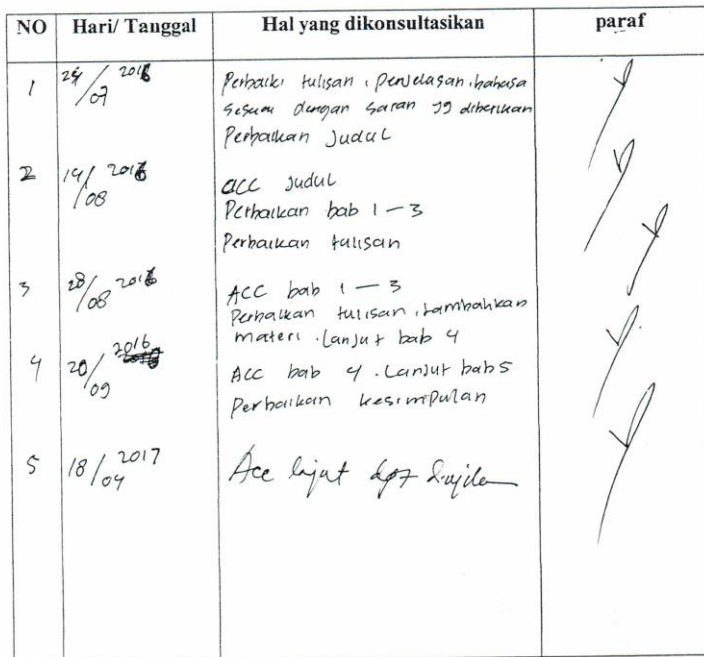 NO Hari/ Tanggal Hal yang dikonsultasikan paraf
1 24/07 2016 Perbaiki tulisan, penjelasan, bahasa
sesuai dengan saran yg diberikan
Perbaikan Judul
2 19/08 2016 acc Judul
Perbaikan bab 1 - 3
Perbaikan tulisan
3 28/08 2016 ACC bab 1 - 3
Perbaikan tulisan, tambahkan
materi. Lanjut bab 4
4 20/09 2016 ACC bab 4. Lanjut bab 5
Perbaikan kesimpulan
5 18/04 2017 Acc